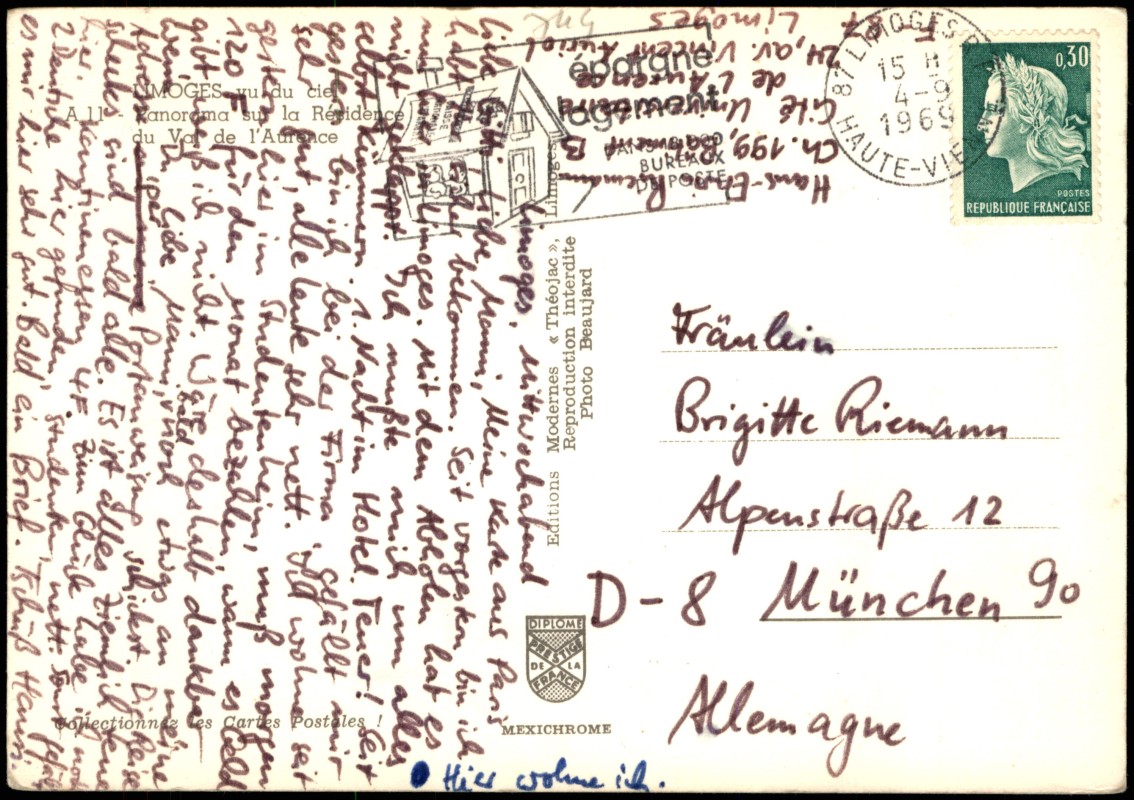 LIMOGES vu du ciel
A 11 - Panorama sur la Résidence
du Val de l'Aurence
Limoges, Mittwochabend
Liebe Gitti, liebe Mami, Meine Karte aus Paris
habt Ihr sicher bekommen. Seit vorgestern bin ich
nun hier in Limoges. Mit dem Abholen hat es
nicht geklappt. Ich mußte mich um alles
selbst kümmern. 1. Nacht im Hotel. Teuer! Seit
gestern bin ich bei der Firma. Gefällt mir
sehr gut, alle Leute sehr nett. Ich wohne seit
gestern hier im Studentenheim, muß morgen
120 F für den Monat bezahlen, wann es Geld
gibt weiß ich nicht. Wäre deshalb dankbar
wenn Du, liebe Mami, bald noch etwas an meine
Adresse per Postanweisung schickst. Die Reise-
schecks sind bald alle. Es ist alles ziemlich teuer
hier. Kantinenessen 4 F. Zum Glück habe ich noch
2 deutsche hier gefunden, Studenten, nett. Sonst gefällt
es mir hier sehr gut. Bald ein Brief. Tschüß Hansi.
Hans-E. Riemann
Ch. 199, Bâtiment B
Cité Universitaire
de l'Aurence
24, av. Vincent Auriol
87 Limoges
épargne
logement
DANS 18 000
BUREAUX
DE POSTE
87 LIMOGES R.P.
15 H
4-9
1969
HAUTE-VIENNE
0,30
POSTES
REPUBLIQUE FRANÇAISE
Editions Modernes « Théojac », Limoges
Reproduction interdite
Photo Beaujard
Fräulein
Brigitte Riemann
Alpenstraße 12
D-8 München 90
Allemagne
DIPLOME
PRESTIGE
DE LA
FRANCE
MEXICHROME
Collectionnez les Cartes Postales !
Hier wohne ich.